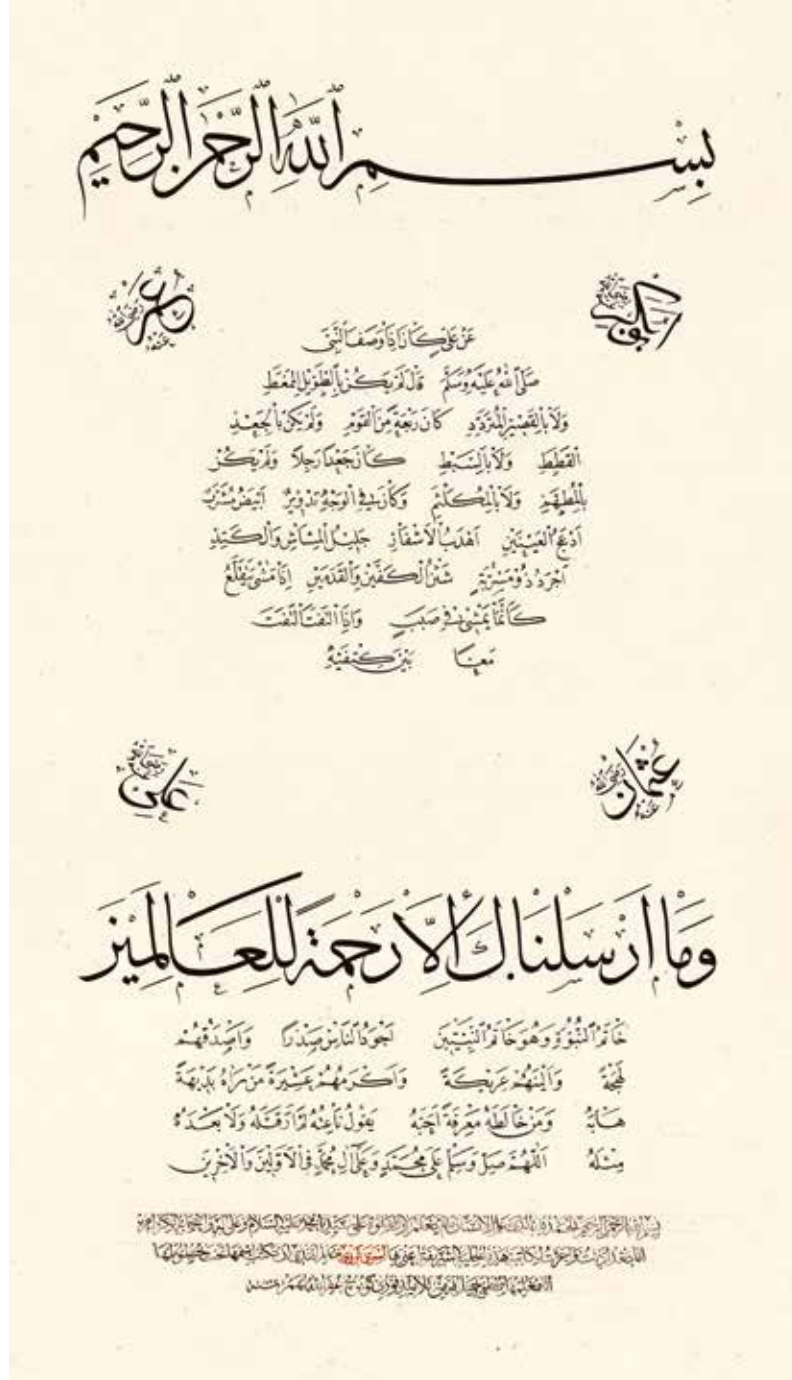 بِسْمِ اللّٰهِ الرَّحْمٰنِ الرَّحِيْمِ
ابو بكر رضي الله عنه
عمر رضي الله عنه
عن علي كان اذا وصف النبي
صلى الله عليه وسلم قال لم يكن بالطويل الممغط
ولا بالقصير المتردد كان ربعة من القوم ولم يكن بالجعد
القطط ولا بالسبط كان جعدا رجلا ولم يكن
بالمطهم ولا بالمكلثم وكان في الوجه تدوير ابيض مشرب
ادعج العينين اهدب الاشفار جليل المشاش والكتد
اجرد ذو مسربة شثن الكفين والقدمين اذا مشى يتقلع
كأنما يمشي في صبب واذا التفت التفت
معا بين كتفيه
عثمان رضي الله عنه
علي رضي الله عنه
وَمَا اَرْسَلْنَاكَ اِلَّا رَحْمَةً لِلْعَالَمِينَ
خاتم النبوة وهو خاتم النبيين اجود الناس صدرا واصدقهم
لهجة والينهم عريكة واكرمهم عشيرة من رآه بديهة
هابه ومن خالطه معرفة احبه يقول ناعته لم ار قبله ولا بعده
مثله اللهم صل وسلم على محمد وعلى آل محمد في الاولين والآخرين